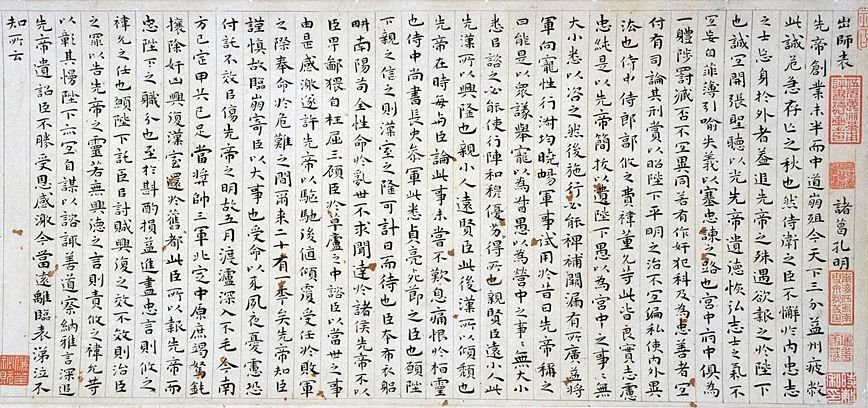 出師表 諸葛孔明
先帝創業未半而中道崩殂今天下三分益州疲敝
此誠危急存亡之秋也然侍衛之臣不懈於內忠志
之士忘身於外者蓋追先帝之殊遇欲報之於陛下
也誠宜開張聖聽以光先帝遺德恢弘志士之氣不
宜妄自菲薄引喻失義以塞忠諫之路也宮中府中俱為
一體陟罰臧否不宜異同若有作奸犯科及為忠善者宜
付有司論其刑賞以昭陛下平明之治不宜偏私使內外異
法也侍中侍郎郭攸之費禕董允等此皆良實志慮
忠純是以先帝簡拔以遺陛下愚以為宮中之事事無
大小悉以咨之然後施行必能裨補闕漏有所廣益將
軍向寵性行淑均曉暢軍事試用於昔日先帝稱之
曰能是以眾議舉寵以為督愚以為營中之事事無大小
悉以諮之必能使行陣和穆優劣得所也親賢臣遠小人此
先漢所以興隆也親小人遠賢臣此後漢所以傾頹也
先帝在時每與臣論此事未嘗不歎息痛恨於桓靈
也侍中尚書長史參軍此悉貞亮死節之臣也陛
下親之信之則漢室之隆可計日而待也臣本布衣躬
畊南陽苟全性命於亂世不求聞達於諸侯先帝不以
臣卑鄙猥自枉屈三顧臣於草廬之中諮臣以當世之事
由是感激遂許先帝以驅馳後值傾覆受任於敗軍
之際奉命於危難之間爾來二十有一年矣先帝知臣
謹慎故臨崩寄臣以大事也受命以來夙夜憂慮恐
付託不效以傷先帝之明故五月渡瀘深入不毛今南
方已定甲兵已足當獎帥三軍北定中原庶竭駑鈍
攘除奸凶興復漢室還於舊都此臣所以報先帝而
忠陛下之職分也至於斟酌損益進盡忠言則攸之
禕允之任也願陛下託臣以討賊興復之效不效則治臣
之罪以告先帝之靈若無興德之言則責攸之禕允等
以彰其慢陛下亦宜自謀以諮諏善道察納雅言深追
先帝遺詔臣不勝受恩感激今當遠離臨表涕泣不
知所云